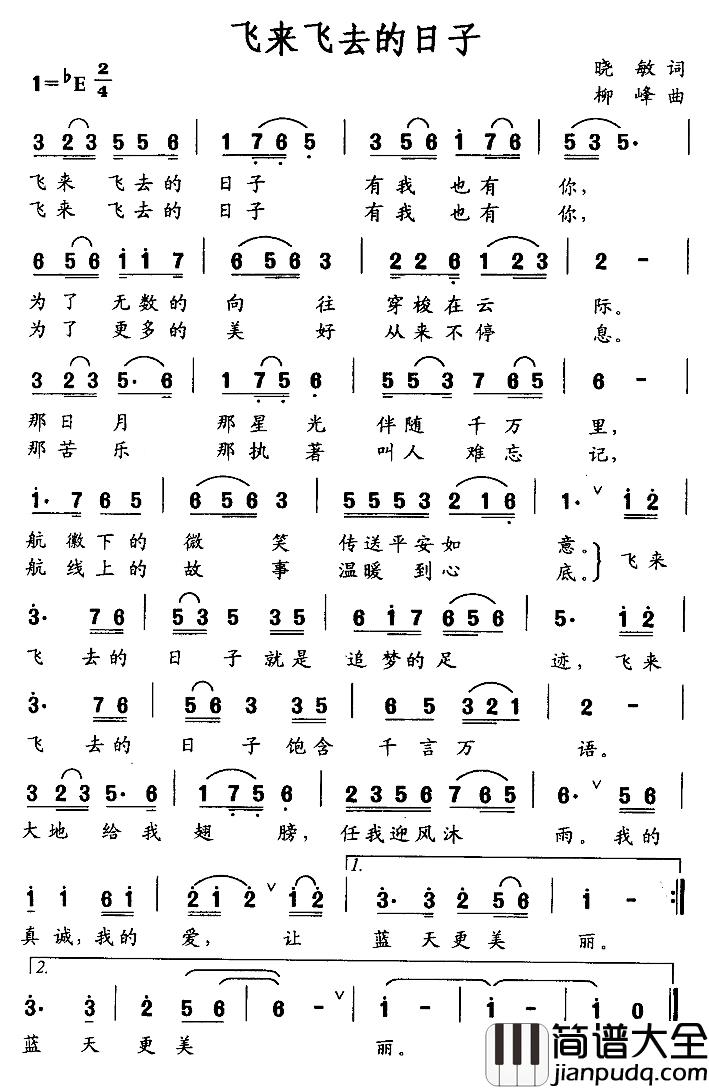 飞来飞去的日子
1=♭E 2/4
晓 敏 词
柳 峰 曲
3 2 3 5 5 6 | 1 7 6 5 | 3 5 6 1 7 6 | 5 3 5· |
飞来 飞去的 日子 有我 也有 你，
飞来 飞去的 日子 有我 也有 你，
6 5 6 1 1 7 | 6 5 6 3 | 2 2 6 1 2 3 | 2 - |
为了 无数的 向 往 穿梭在云 际。
为了 更多的 美 好 从来不停 息。
3 2 3 5· 6 | 1 7 5 6 | 5 5 3 7 6 5 | 6 - |
那日 月 那星 光 伴随 千万 里，
那苦 乐 那执 著 叫人 难忘 记，
1· 7 6 5 | 6 5 6 3 | 5 5 5 3 2 1 6 | 1· ∨ 1 2 |
航 徽下的 微 笑 传送平安如 意。 飞来
航 线上的 故 事 温暖 到心 底。
3· 7 6 | 5 3 5 3 5 | 6 1 7 6 5 6 | 5· 1 2 |
飞 去的 日 子就是 追梦的足 迹，飞来
3· 7 6 | 5 6 3 3 5 | 6 5 3 2 1 | 2 - |
飞 去的 日 子饱含 千言万 语。
3 2 3 5· 6 | 1 7 5 6 | 2 3 5 6 7 6 5 | 6· ∨ 5 6 |
大地 给我 翅 膀，任我迎风沐 雨。我的
1.
1 1 6 1 | 2 1 2 ∨ 1 2 | 3· 3 2 5 6 | 1 - :‖
真诚，我的 爱， 让 蓝 天更美 丽。
2.
3· 3 | 2 5 6 | 6 - ∨ | 1 - | 1 - | 1 0 ‖
蓝 天 更 美 丽。
简谱大全
jianpudq.com